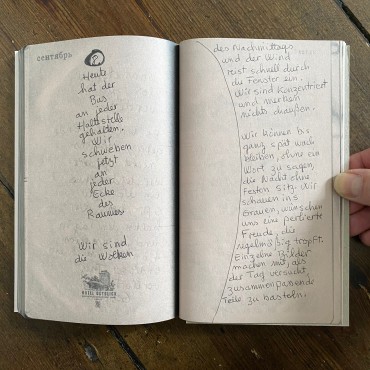 сентябрь
2
Heute
hat der
Bus
an jeder
Haltestelle
gehalten.
Wir
schweben
jetzt
an
jeder
Ecke
des
Raumes
Wir sind
die Wolken
des Nachmittags
und der Wind
reist schnell durch
die Fenster ein.
Wir sind konzentriert
und merken
nichts draußen.
Wir können bis
ganz spät wach
bleiben, ohne ein
Wort zu sagen,
die Nacht ohne
festen Sitz. Wir
schauen ins
Grauen, wünschen
uns eine portierte
Freude, die
regelmäßig tropft.
Einzelne Bilder
machen mit, als
der Tag versucht,
zusammenpassende
Teile zu basteln.